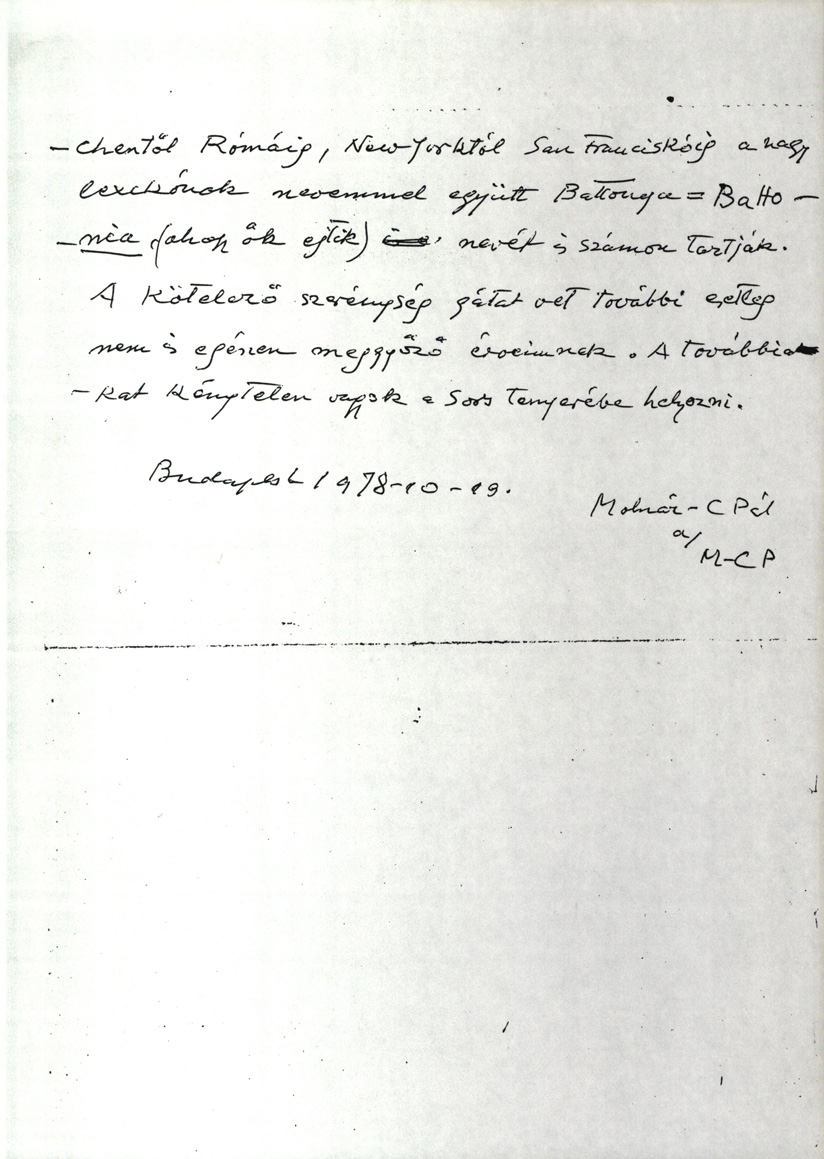 – chentől Rómáig, New-Yorktól San Franciskóig a nagy
lexikónok nevemmel együtt Battonya = Batto –
– nia (ahogy ők ejtik) nevét is számon tartják.
A kötelező szerénység gátat vet további esetleg
nem is egészen meggyőző érveimnek. A további
– kat kénytelen vagyok a Sors tenyerébe helyezni.
Budapest 1978-10-19.
Molnár-C Pál
a/
M-C P